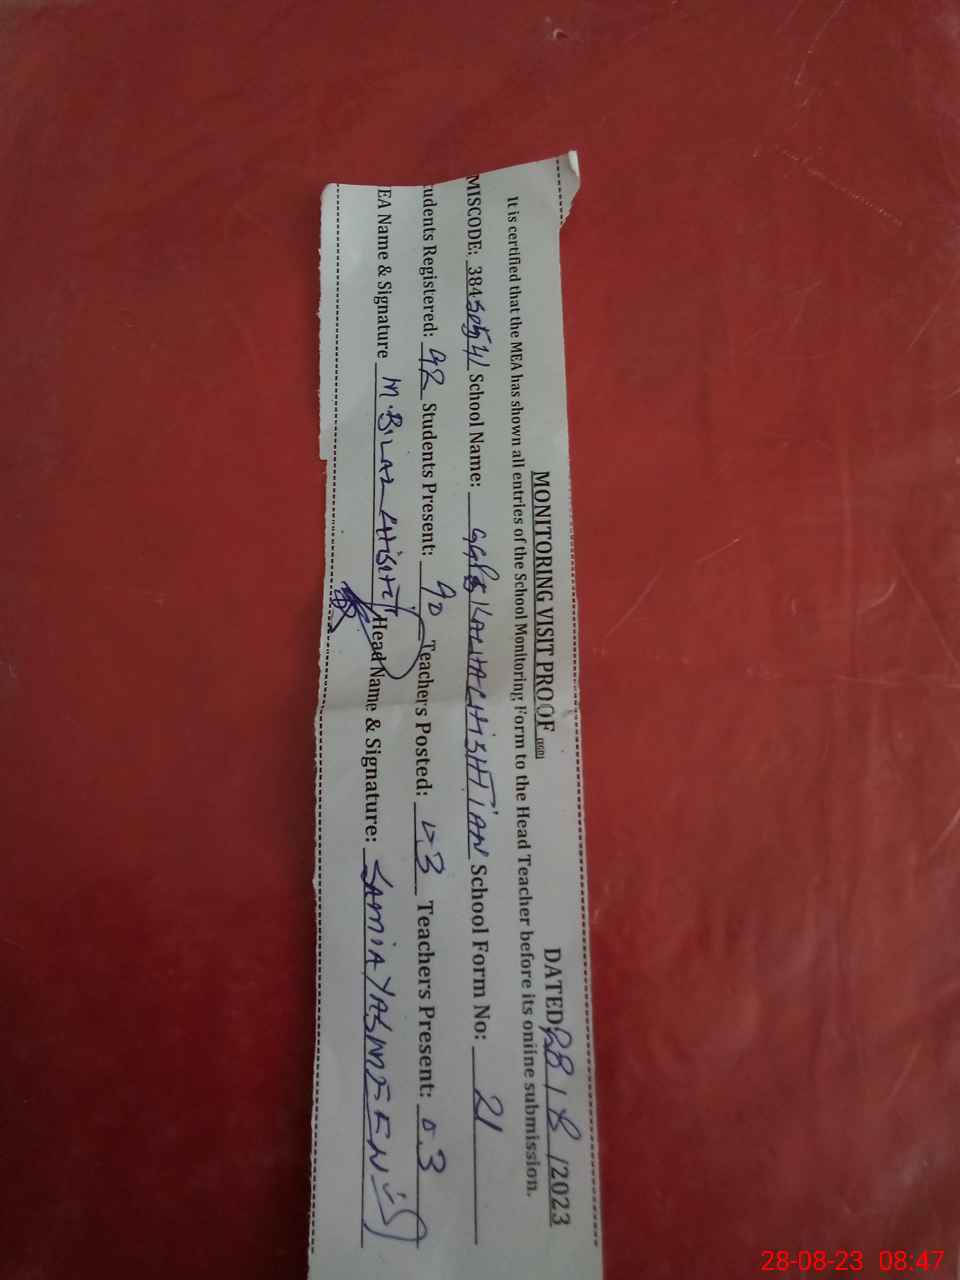 MONITORING VISIT PROOF DATED 28/8/2023
It is certified that the MEA has shown all entries of the School Monitoring Form to the Head Teacher before its online submission.
MISCODE: 384 School Name: GGPS KALIA CHISHTIAN School Form No: 21
udents Registered: 92 Students Present: 90 Teachers Posted: 03 Teachers Present: 03
EA Name & Signature M.BILAL CHISHTI Head Name & Signature: SAMIA YASMEEN
28-08-23 08:47